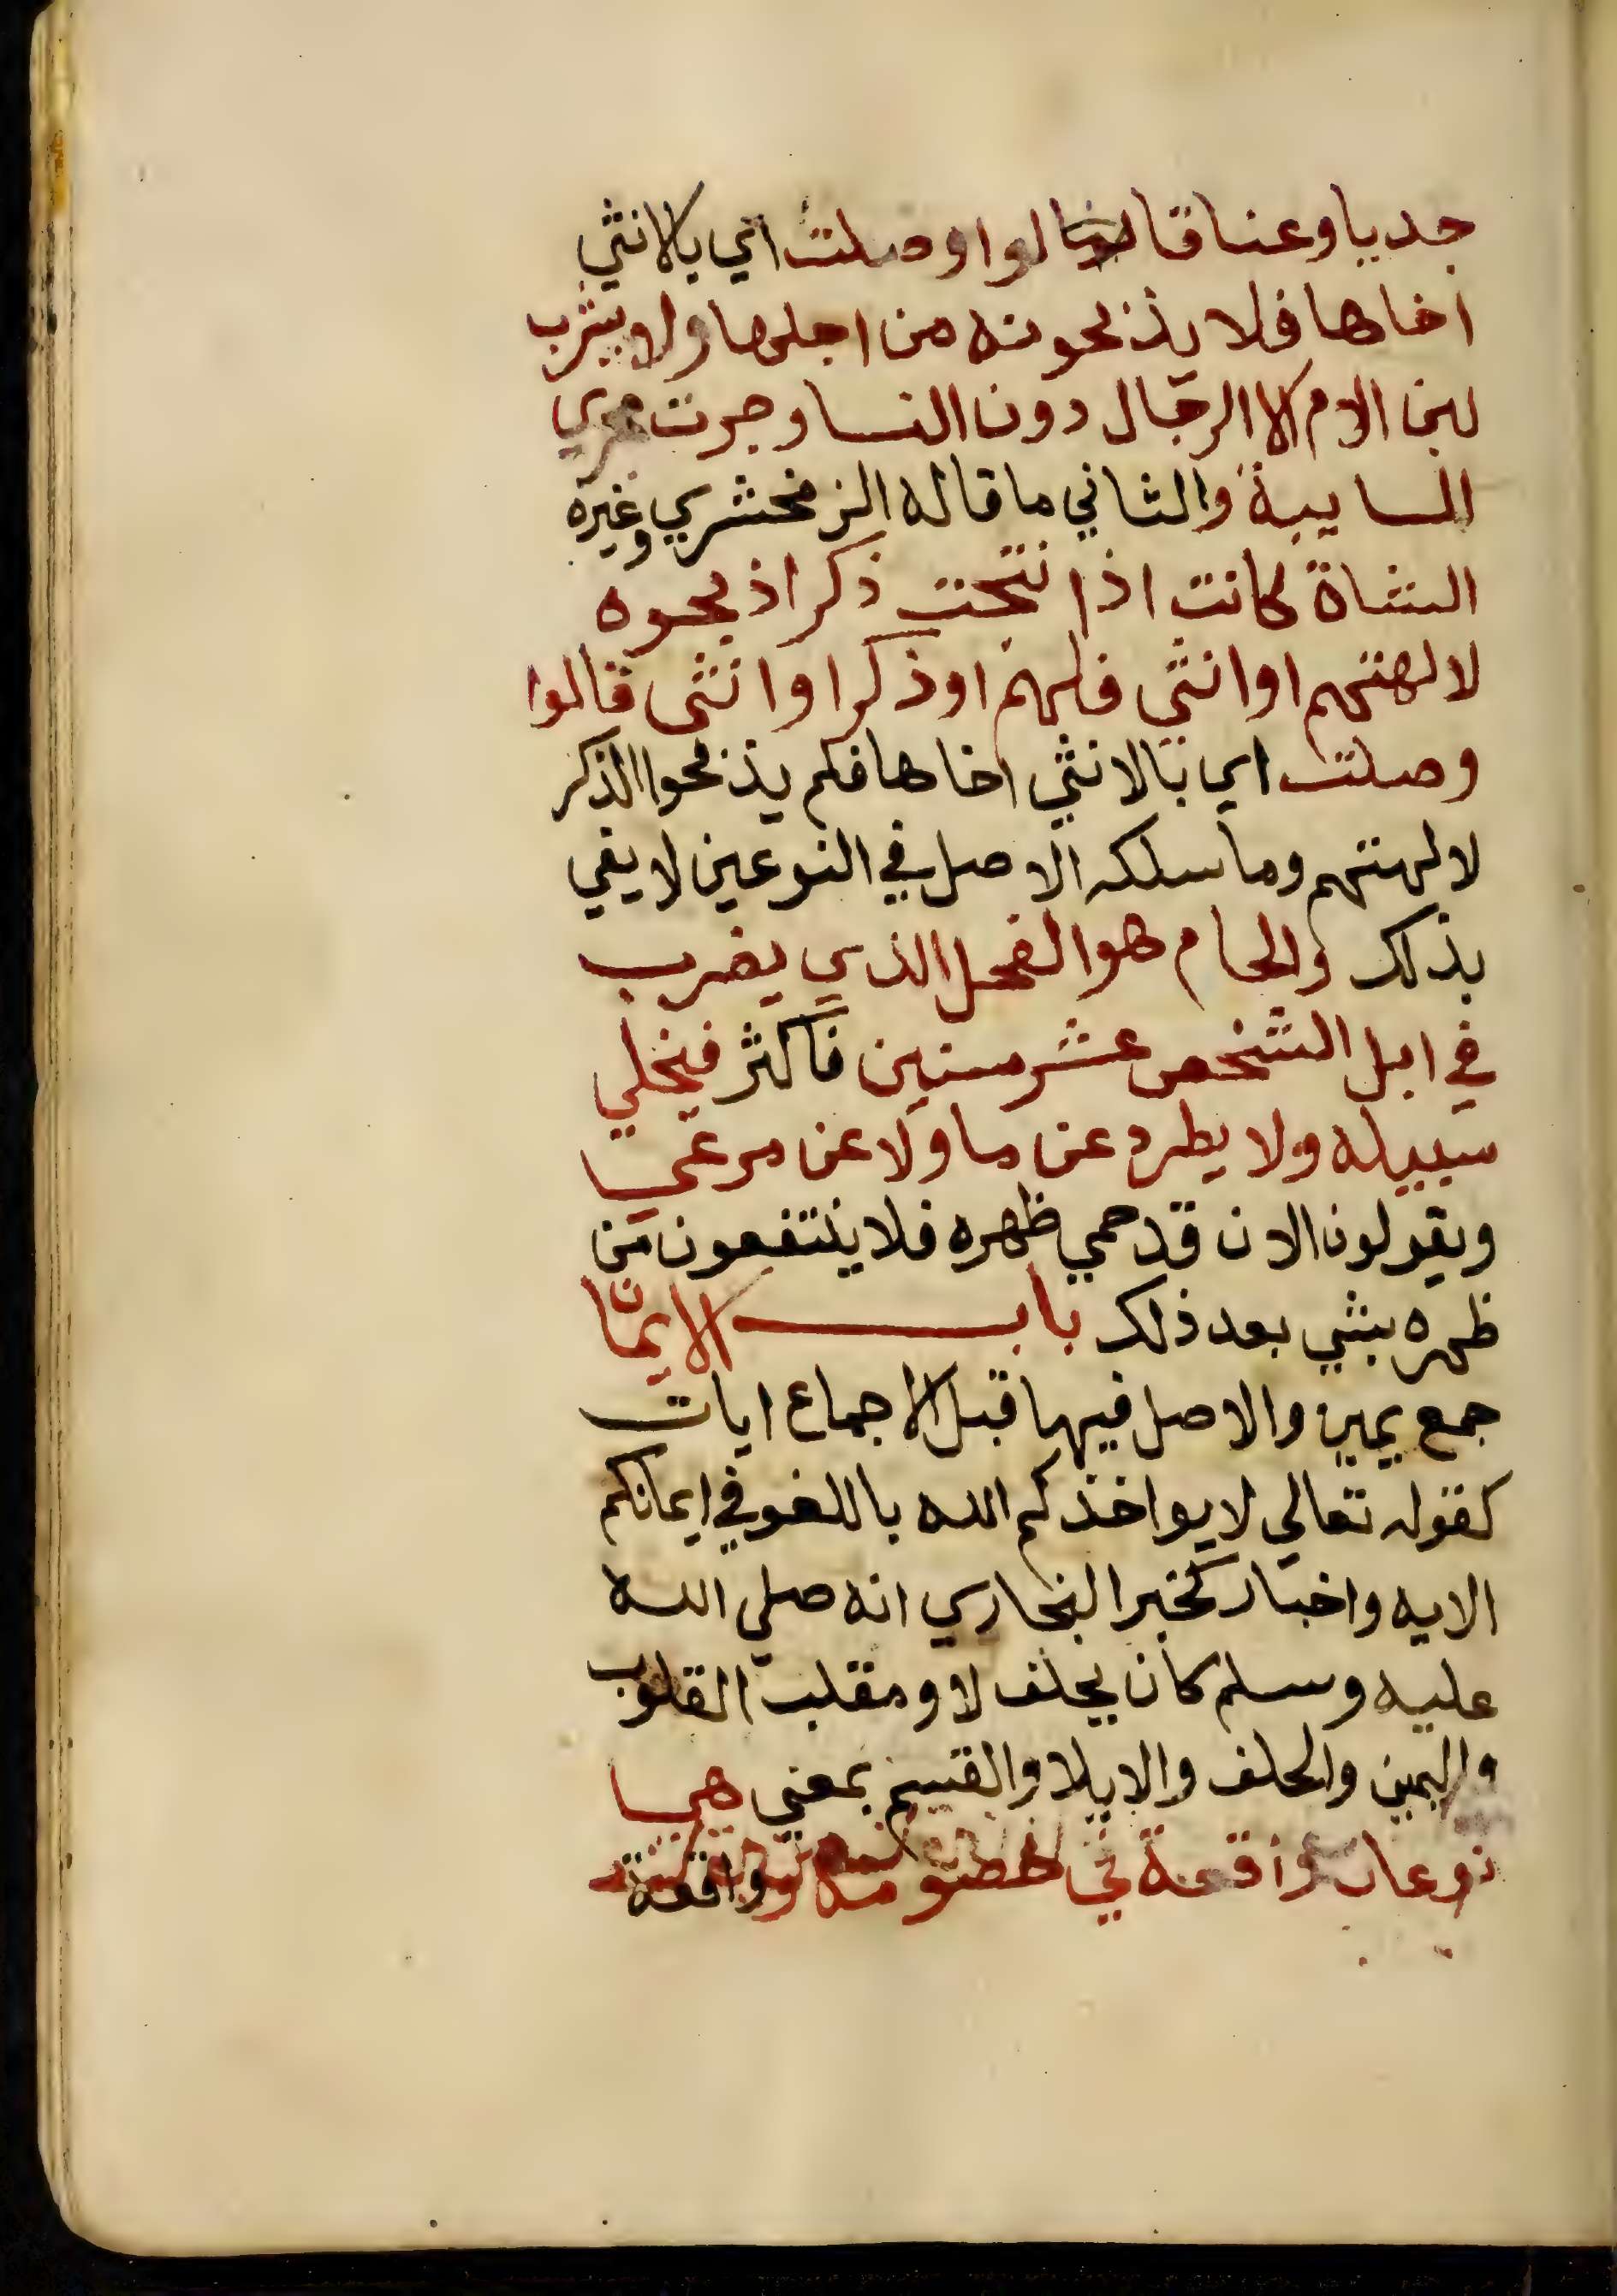 جديا وعناقا قالوا وصلت اي بالانثي
اخاها فلا يذبحونه من اجلها ولا يشرب
لبن الام الا الرجال دون النسا وجرت مجري
السايبة والثاني ما قاله الزمخشري وغيره
الشاة كانت اذا نتجت ذكرا ذبحوه
لالهتهم او انثي فلهم او ذكرا وانثى قالوا
وصلت اي بالانثي اخاها فلم يذبحوا الذكر
لالهتهم وما سلكه الاصل في النوعين لا يفي
بذلك والحام هو الفحل الذي يضرب
في ابل الشخص عشر سنين فاكثر فيخلي
سبيله ولا يطرد عن ما ولا عن مرعي
ويقولون الان قد حمي ظهره فلا ينتفعون من
ظهره بشي بعد ذلك باب الايمان
جمع يمين والاصل فيها قبل الاجماع ايات
كقوله تعالي لا يواخذكم الله باللغو في ايمانكم
الايه واخبار كخبر البخاري انه صلي الله
عليه وسلم كان يحلف لا ومقلب القلوب
واليمين والحلف والايلا والقسم بمعني هي
نوعان واقعة في خصومة وواقعة